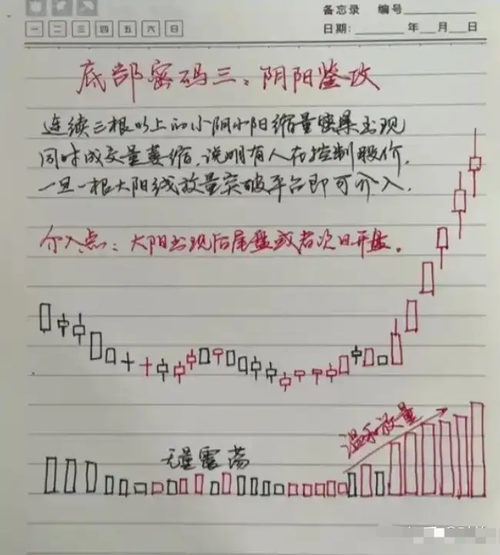 备忘录 编号
一 二 三 四 五 六 日
日期: 年 月 日
底部密码三: 阴阳鉴攻
连续三根以上的小阴小阳缩量密集出现
同时成交量萎缩,说明有人在控制股价,
一旦一根大阳线放量突破平台即可介入.
介入点: 大阳出现后尾盘或者次日开盘.
无量震荡
温和放量